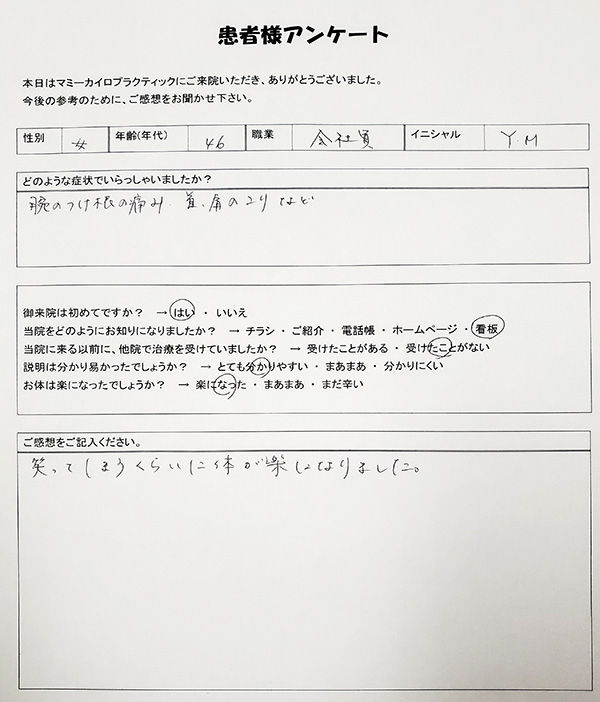 患者様アンケート
本日はマミーカイロプラクティックにご来院いただき、ありがとうございました。
今後の参考のために、ご感想をお聞かせ下さい。
性別 女 年齢(年代) 46 職業 会社員 イニシャル Y.M
どのような症状でいらっしゃいましたか?
腕のつけ根の痛み、首、肩のコリなど
御来院は初めてですか? → はい ・ いいえ
当院をどのようにお知りになりましたか? → チラシ ・ ご紹介 ・ 電話帳 ・ ホームページ ・ 看板
当院に来る以前に、他院で治療を受けていましたか? → 受けたことがある ・ 受けたことがない
説明は分かり易かったでしょうか? → とても分かりやすい ・ まあまあ ・ 分かりにくい
お体は楽になったでしょうか? → 楽になった ・ まあまあ ・ まだ辛い
ご感想をご記入ください。
笑ってしまうくらいに体が楽になりました。